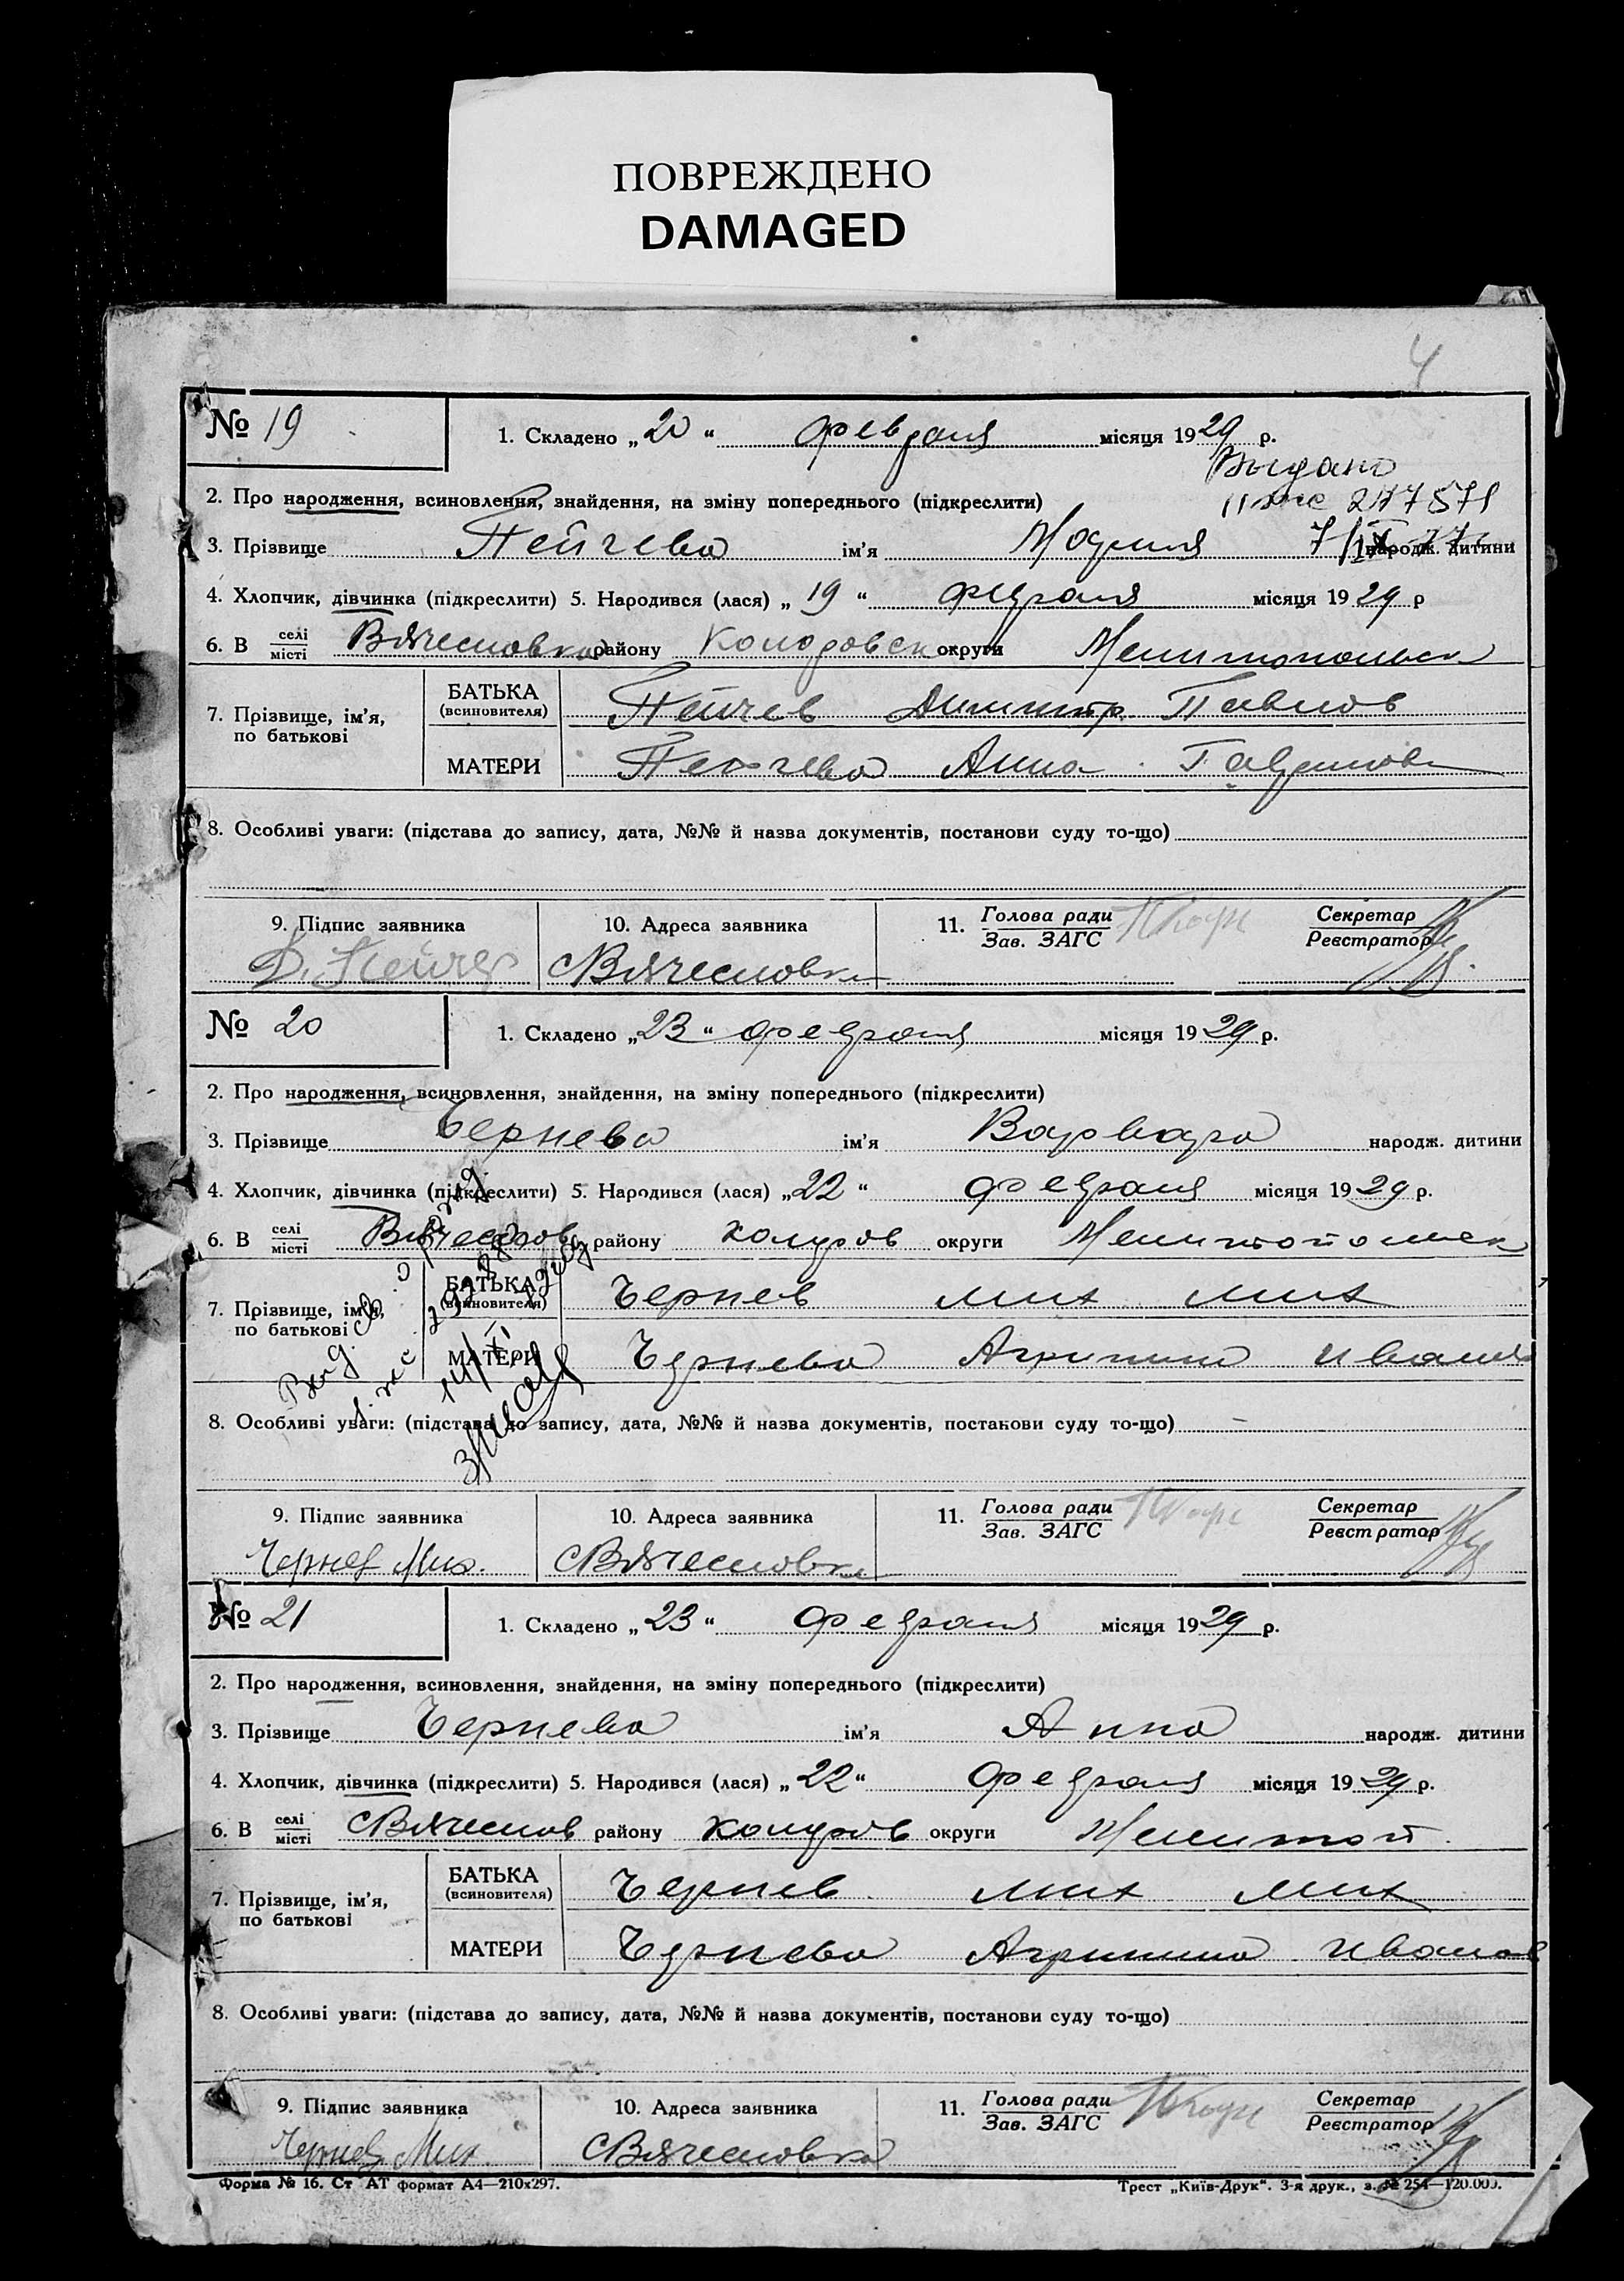 ПОВРЕЖДЕНО
DAMAGED
4
№ 19
1. Складено „20“ февраля місяця 1929 р.
Выдано
2. Про народження, всиновлення, знайдення, на зміну попереднього (підкреслити)
3. Прізвище Пейчева ім'я народж. дитини
4. Хлопчик, дівчинка (підкреслити) 5. Народився (лася) „19“ февраля місяця 1929 р
6. В селі/місті Вячесловка району округи Мелитопольск
7. Прізвище, ім'я, по батькові
БАТЬКА (всиновителя) Пейчев Димитр Павлов
МАТЕРИ Пейчева Анна Гаврилов
8. Особливі уваги: (підстава до запису, дата, №№ й назва документів, постанови суду то-що)
9. Підпис заявника Д. Пейчев
10. Адреса заявника с Вячесловка
11. Голова ради/Зав. ЗАГС
Секретар/Реєстратор
№ 20
1. Складено „23“ февраля місяця 1929 р.
2. Про народження, всиновлення, знайдення, на зміну попереднього (підкреслити)
3. Прізвище Чернева ім'я Варвара народж. дитини
4. Хлопчик, дівчинка (підкреслити) 5. Народився (лася) „22“ февраля місяця 1929 р.
6. В селі/місті району округи Мелитопольск
7. Прізвище, ім'я, по батькові
БАТЬКА (всиновителя) Чернев Мих Мих
МАТЕРИ Чернева Агрипина Иванов
8. Особливі уваги: (підстава до запису, дата, №№ й назва документів, постанови суду то-що)
9. Підпис заявника Чернев Мих.
10. Адреса заявника с Вячесловка
11. Голова ради/Зав. ЗАГС
Секретар/Реєстратор
№ 21
1. Складено „23“ февраля місяця 1929 р.
2. Про народження, всиновлення, знайдення, на зміну попереднього (підкреслити)
3. Прізвище Чернева ім'я Анна народж. дитини
4. Хлопчик, дівчинка (підкреслити) 5. Народився (лася) „22“ февраля місяця 1929 р.
6. В селі/місті с Вячеслов району округи Мелитоп.
7. Прізвище, ім'я, по батькові
БАТЬКА (всиновителя) Чернев Мих Мих
МАТЕРИ Чернева Агрипина Иванов
8. Особливі уваги: (підстава до запису, дата, №№ й назва документів, постанови суду то-що)
9. Підпис заявника Чернев Мих.
10. Адреса заявника с Вячесловка
11. Голова ради/Зав. ЗАГС
Секретар/Реєстратор
Форма № 16. Ст АТ формат А4—210х297.
Трест „Київ-Друк“. 3-я друк., з. № 254—120.000.